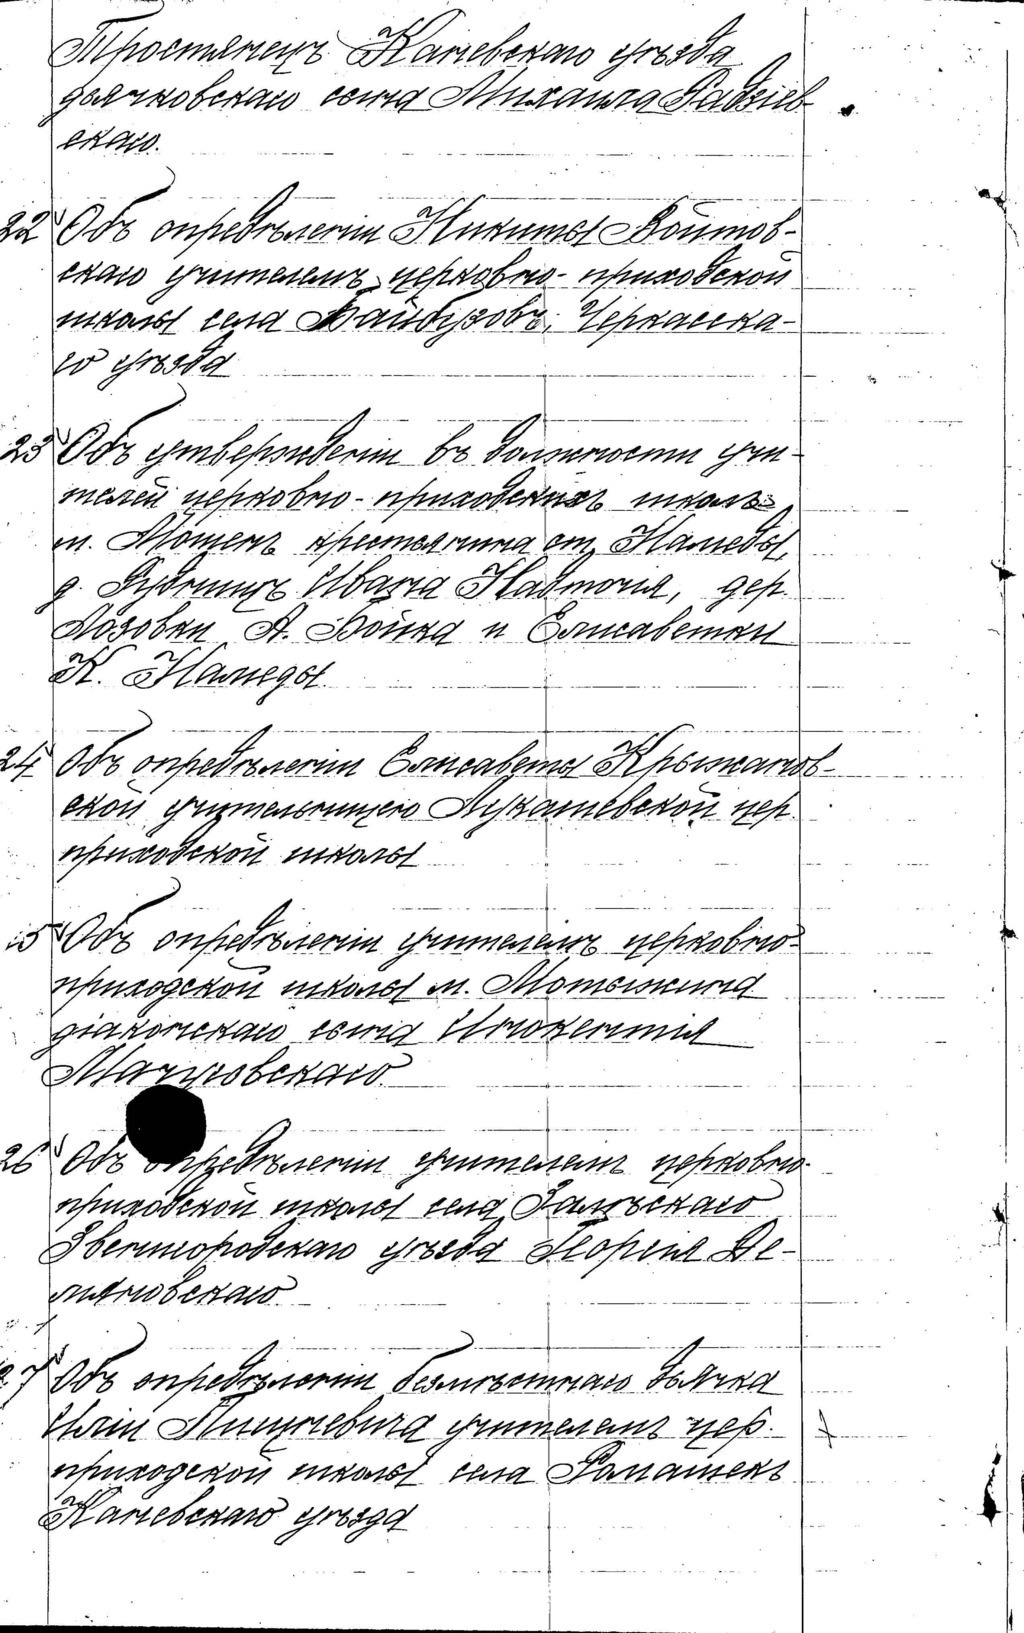 Тростянецъ Каневскаго уѣзда
дьячковскаго сына Михаила Радзіев-
скаго.
22 Объ опредѣленіи Никиты Войтов-
скаго учителемъ церковно-приходской
школы села Байбузовъ, Черкасска-
го уѣзда
23 Объ утвержденіи въ должности учи-
телей церковно-приходскихъ школъ
м. Мошенъ крестьянина ст. Намеды,
д. Будницъ Ивана Навточія, дер.
Лозовки А. Бойка и Елисаветки
К. Намеды.
24 Объ опредѣленіи Елисаветы Крыжанов-
ской учительницею Лукашевской цер.
приходской школы
25 Объ опредѣленіи учителемъ церковно-
приходской школы м. Мотыжина
діаконскаго сына Инокентія
Мацковскаго
26 Объ опредѣленіи учителемъ церковно-
приходской школы села Залѣскаго
Звенигородскаго уѣзда Георгія Де-
мяновскаго
27 Объ опредѣленіи безмѣстнаго дьячка
Иліи учителемъ цер.
приходской школы села Ромашекъ
Каневскаго уѣзда